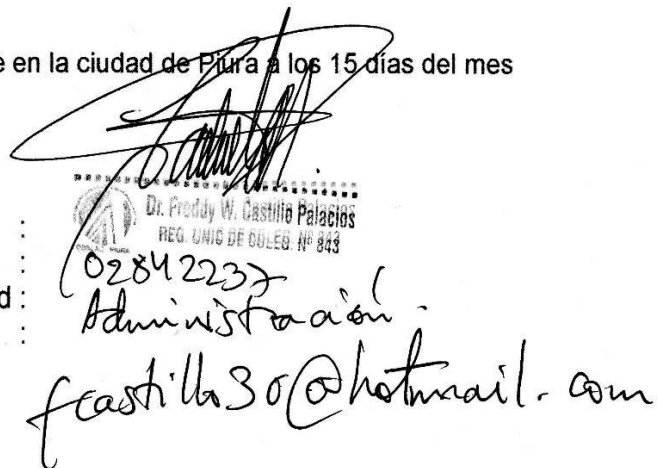 e en la ciudad de Piura a los 15 días del mes
Dr. Freddy W. Castillo Palacios
REG. UNIC DE COLEG. Nº 843
:
02842237
:
d :
Administración.
:
fcastillo30@hotmail.com